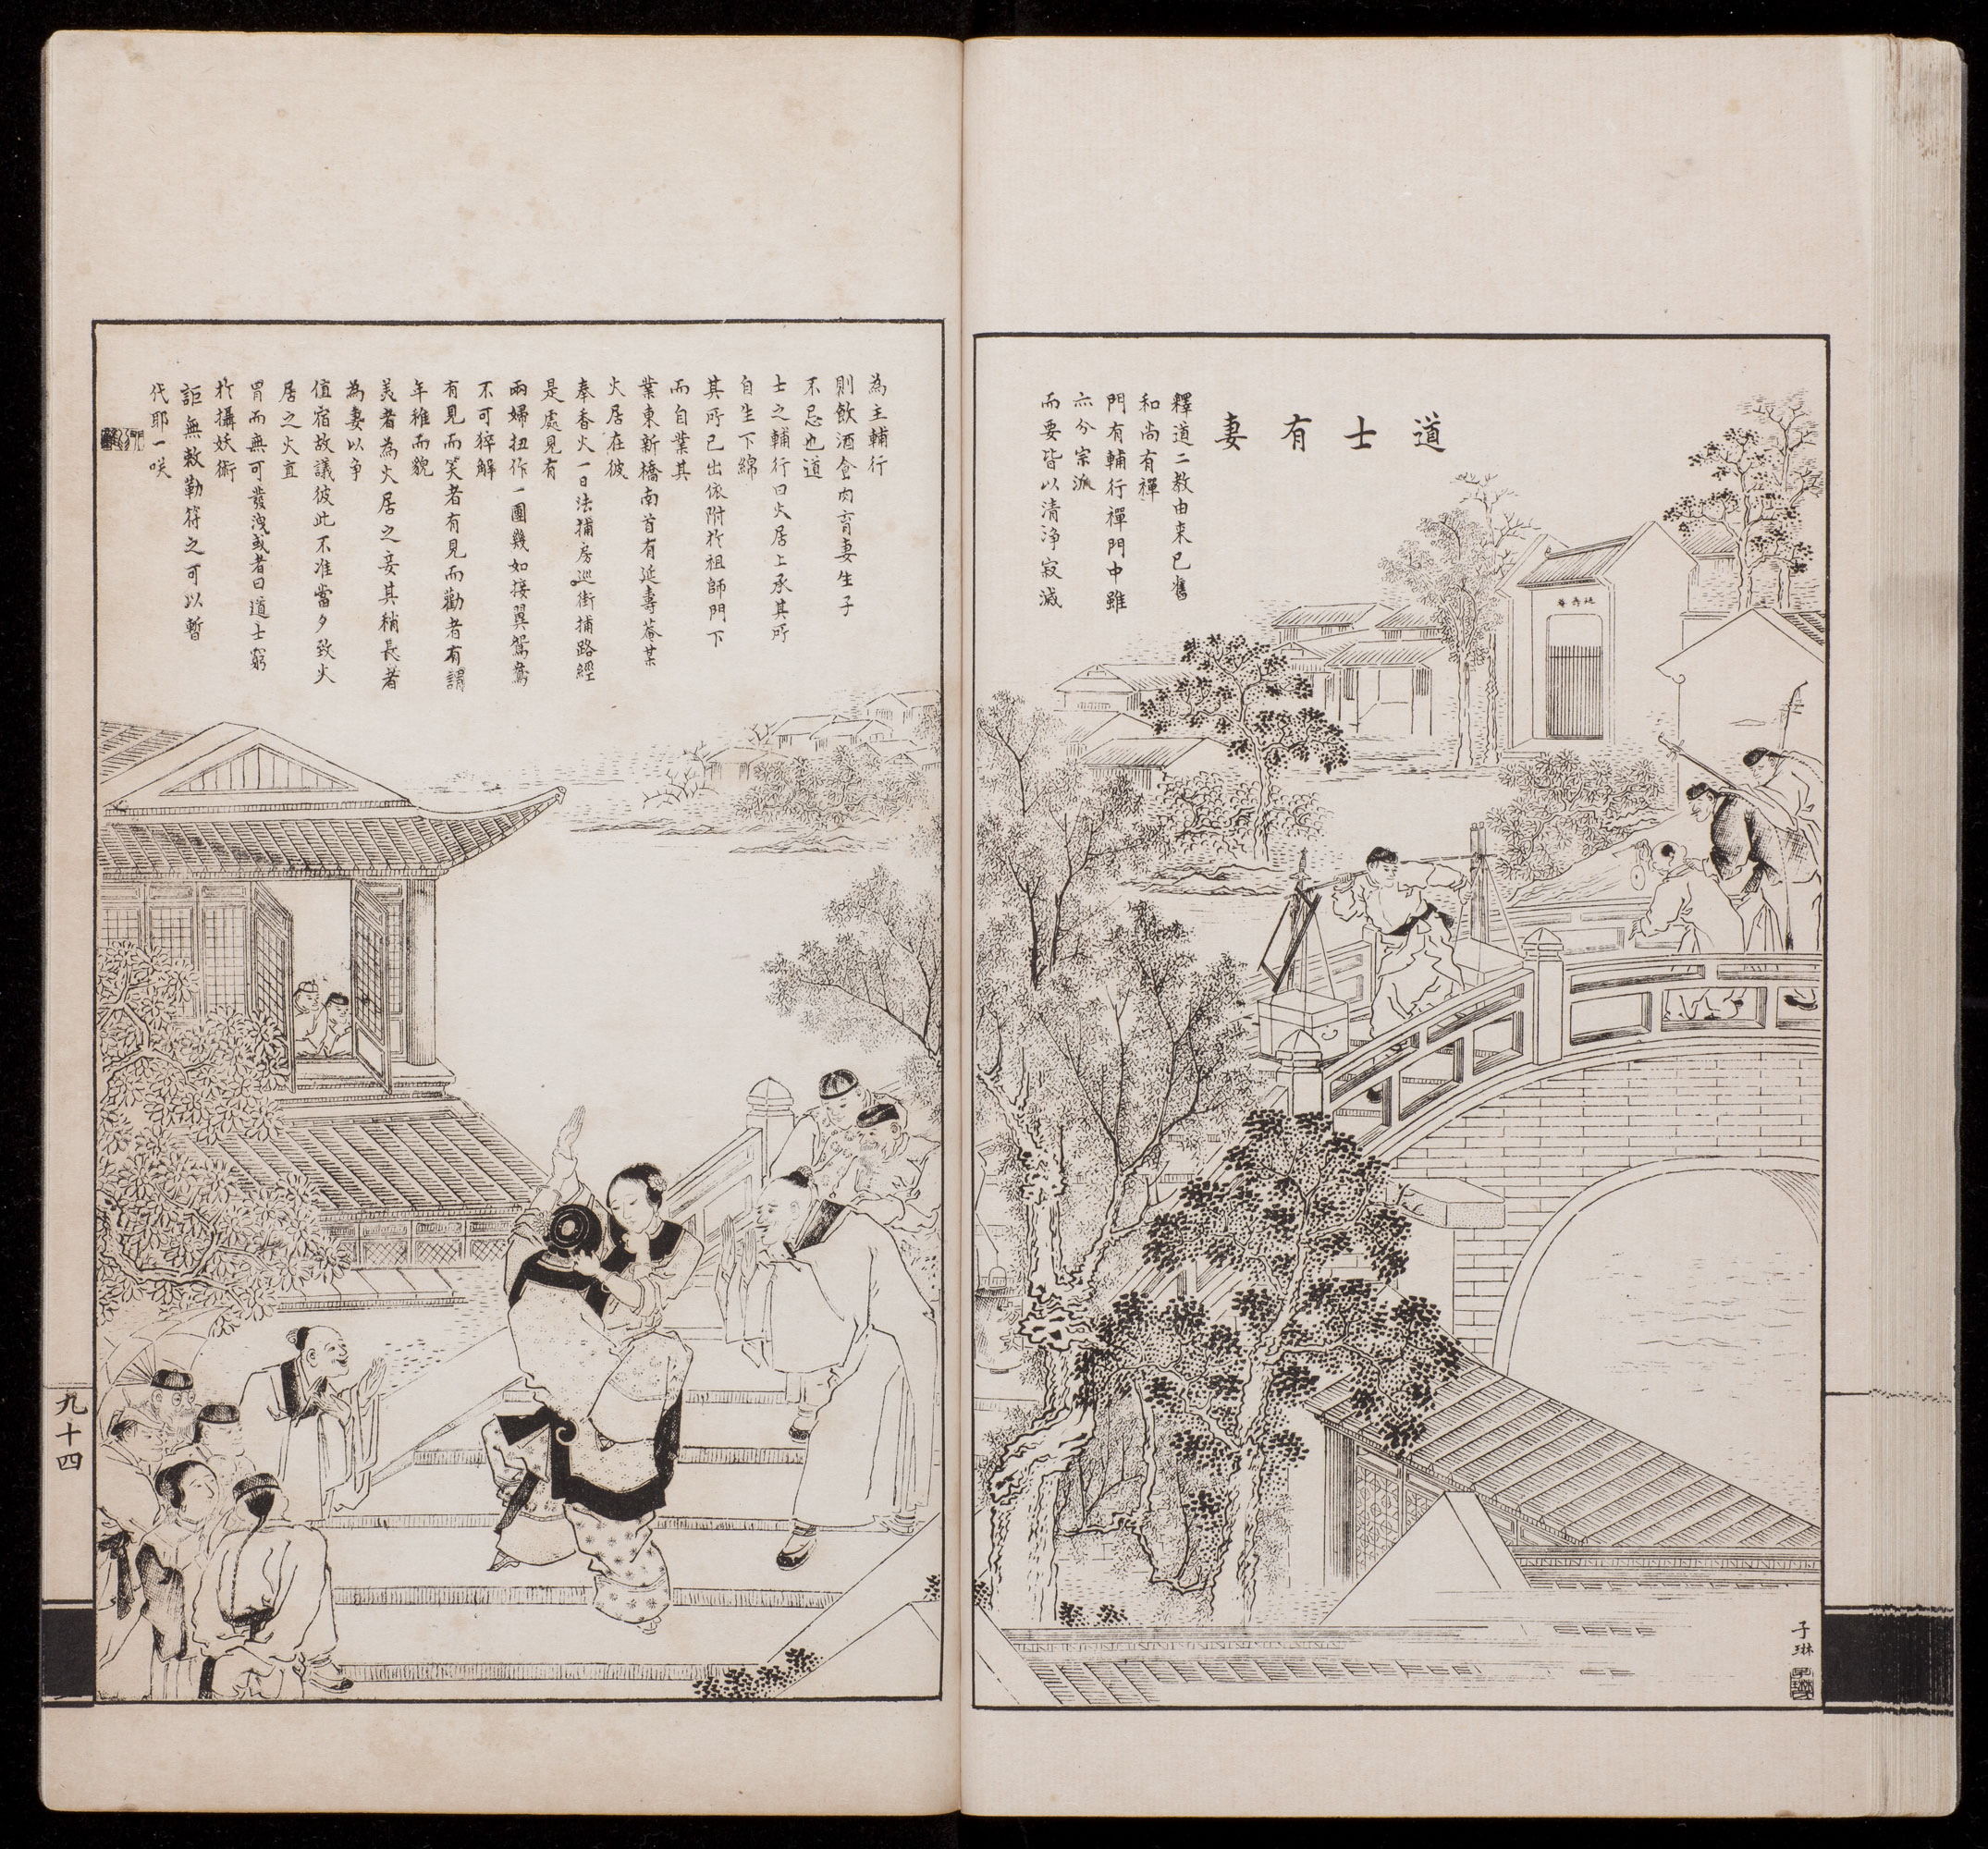 道士有妻
釋道二教由来已舊
和尚有禪
門有輔行禪門中雖
亦分宗派
而要皆以清淨寂滅
為主輔行
則飲酒食肉育妻生子
不忌也道
士之輔行曰火居上承其所
自生下綿
其所已出依附於祖師門下
而自業其
業東新橋南首有延壽菴某
火居在彼
奉香火一日法捕房巡街捕路經
是處見有
兩婦扭作一團幾如接翼鴛鴦
不可猝解
有見而笑者有見而勸者有謂
年稚而貌
美者為火居之妾其稍長者
為妻以争
值宿故議彼此不准當夕致火
居之火直
冒而無可發洩或者曰道士窮
於攝妖術
詎無敕勒符之可以暫
代耶一咲
延壽菴
子琳
九十四